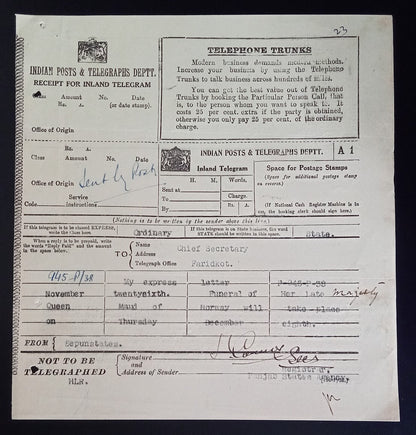 23
INDIAN POSTS & TELEGRAPHS DEPTT.
RECEIPT FOR INLAND TELEGRAM
Class Amount No. Date
Rs. A. (or date stamp).
Office of Origin
TELEPHONE TRUNKS
Modern business demands modern methods.
Increase your business by using the Telephone
Trunks to talk business across hundreds of miles.
You can get the best value out of Telephone
Trunks by booking the Particular Person Call, that
is, to the person whom you want to speak to. It
costs 25 per cent. extra if the party is obtained,
otherwise you only pay 25 per cent. of the ordinary
charge.
Class Amount No. Date
Rs. A.
Office of Origin
Sent by Post
Service
Code instructions
INDIAN POSTS & TELEGRAPHS DEPTT.
Inland Telegram
A 1
H. M. Words.
Sent at
To Charge.
By Rs. A.
Space for Postage Stamps
(Space for additional postage stamps
on reverse.)
(If National Cash Register Machine is in
the booking clerk should sign here.)
(Nothing is to be written by the sender above this line)
If this telegram is to be classed EXPRESS,
write the Class here.
Ordinary
If this telegram is on State business, the word
STATE should be written in this space.
State.
When a reply is to be prepaid, write
the words "Reply Paid" and the amount
in the space below.
TO
Name
Address
Telegraph Office
Chief Secretary
Faridkot.
945-P/38
My express letter F-945-P-38
November twentysixth. Funeral of Her late Majesty
Queen Maud of Norway will take place
on Thursday December eighth.
FROM Sepunstates.
NOT TO BE
TELEGRAPHED
HLR.
Signature
and
Address of Sender
Registrar,
Punjab States Agency.